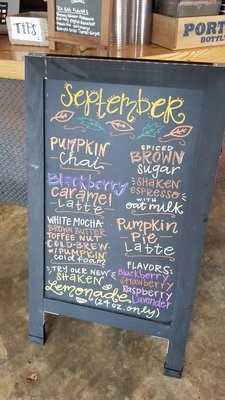 TIPS
PORT
BOTTL
September
PUMPKIN
Chai
Blackberry
Caramel
Latte
WHITE MOCHA
BROWN BUTTER
TOFFEE NUT
COLD-BREW
W/PUMPKIN
cold foam
TRY OUR NEW
SHAKEN
Lemonade
(24 oz. only)
SPICED
BROWN
Sugar
SHAKEN
espresso
WITH
oat milk
Pumpkin
Pie
Latte
FLAVORS:
Blackberry
Strawberry
Raspberry
Lavender